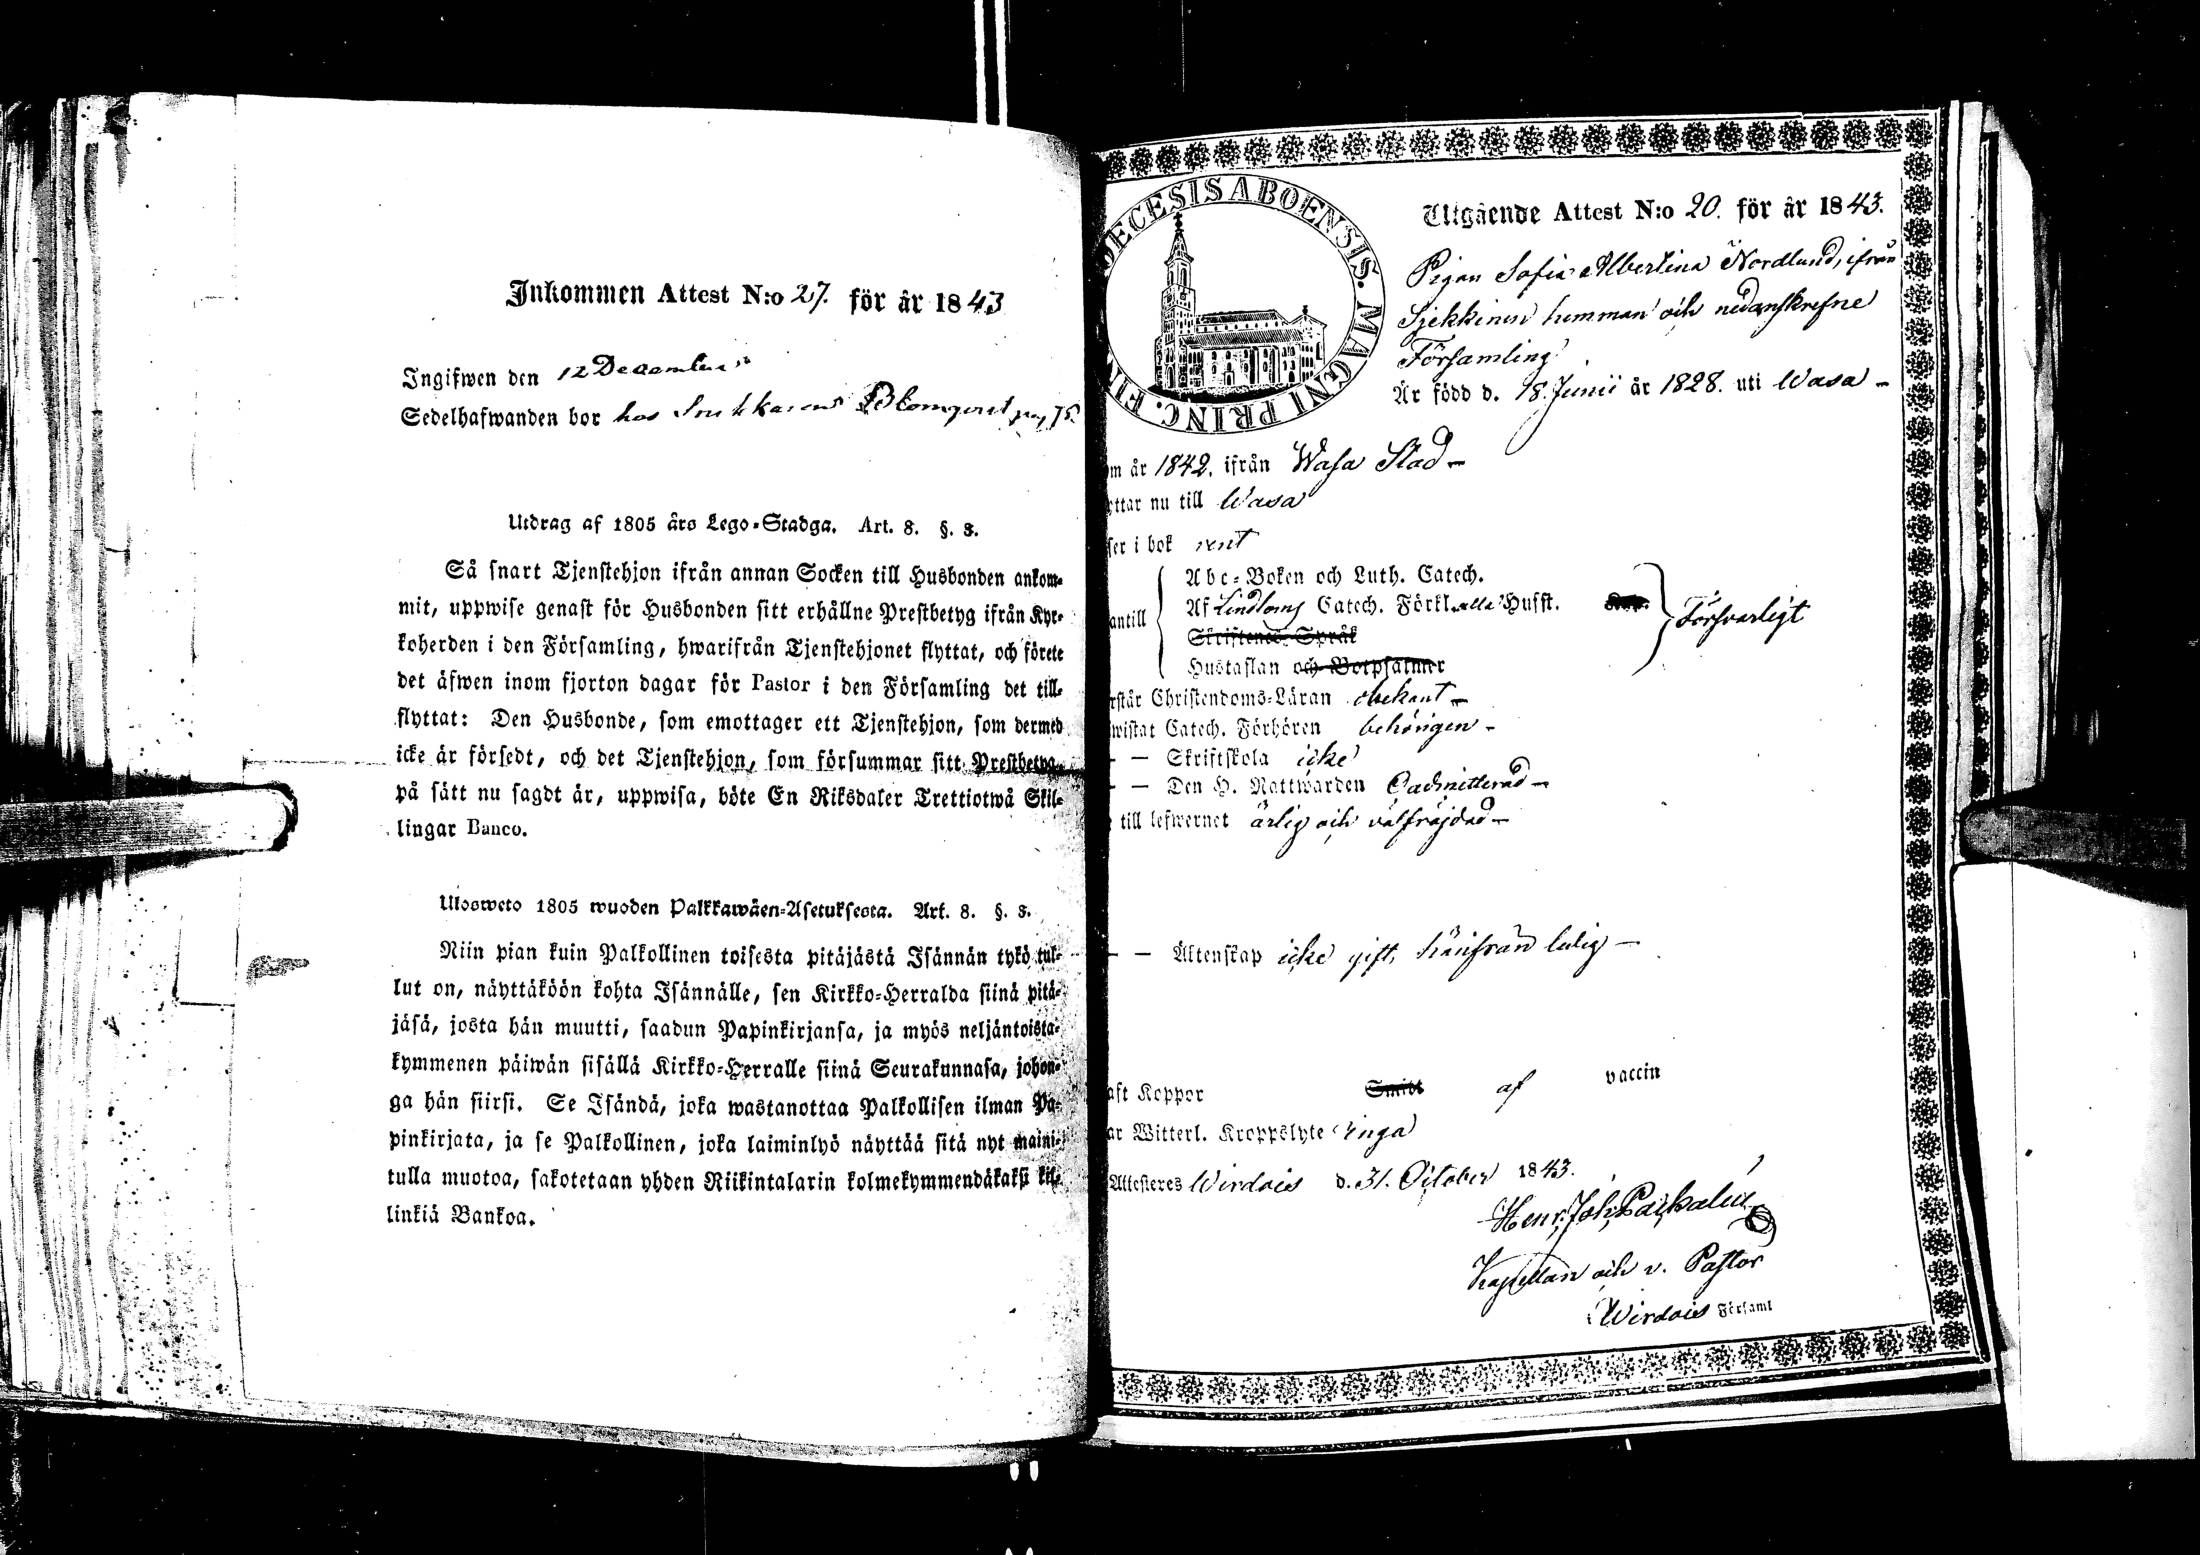 Inkommen Attest N:o 27. för år 1843
Ingifwen den 12 December
Sedelhafwanden bor hos Snikkaren Blomqvist pag 75.
Utdrag af 1805 års Lego-Stadga. Art. 8. §. 8.
Så snart Tjenstehjon ifrån annan Socken till Husbonden ankom-
mit, uppwise genast för Husbonden sitt erhållne Prestbetyg ifrån Kyr-
koherden i den Församling, hwarifrån Tjenstehjonet flyttat, och förete
det äfwen inom fjorton dagar för Pastor i den Församling det till-
flyttat: Den Husbonde, som emottager ett Tjenstehjon, som dermed
icke är försedt, och det Tjenstehjon, som försummar sitt Prestbetyg,
på sätt nu sagdt är, uppwisa, böte En Riksdaler Trettiotwå Skil-
lingar Banco.
Ulosweto 1805 wuoden Palkkawäen-Asetuksesta. Art. 8. §. 8.
Niin pian kuin Palkollinen toisesta pitäjästä Isännän tykö tul-
lut on, näyttäköön kohta Isännälle, sen Kirkko-Herralda siinä pitä-
jäsä, josta hän muutti, saadun Papinkirjansa, ja myös neljäntoista-
kymmenen päiwän sisällä Kirkko-Herralle siinä Seurakunnasa, johon-
ga hän siirsi. Se Isändä, joka wastanottaa Palkollisen ilman Pa-
pinkirjata, ja se Palkollinen, joka laiminlyö näyttää sitä nyt maini-
tulla muotoa, sakotetaan yhden Riikintalarin kolmekymmendäkaksi kil-
linkiä Bankoa.
DECESIS ABOENSIS. MAGNI PRINC. FIN
Utgående Attest N:o 20. för år 1843.
Pigan Sofia Albertina Nordlund, ifrån
Sjekkinen hemman och nedanskrefne
Församling
Är född d. 18. Junii år 1828. uti Wasa
om år 1842. ifrån Wasa Stad
ottar nu till Wasa
ser i bok rent
antill
Abc-Boken och Luth. Catech.
Af Lindloms Catech. Förkl. alla Husst.
Skriftenes Språk
Hustaflan och Botpsalmer
Försvarligt
rstår Christendoms-Läran obekant
wistat Catech. Förhören behörigen
— — Skriftskola icke
— — Den H. Nattwarden Oadmitterad
till lefwernet ärlig och välfräjdad
— — Äktenskap icke gift, härifrån ledig
aft Koppor Smitt af vaccin
ar Witterl. Kroppslyte inga
Attesteres Wirdois d. 31. October 1843.
Henr. Joh. Paikalén
Kapellan och v. Pastor
Wirdois Församl